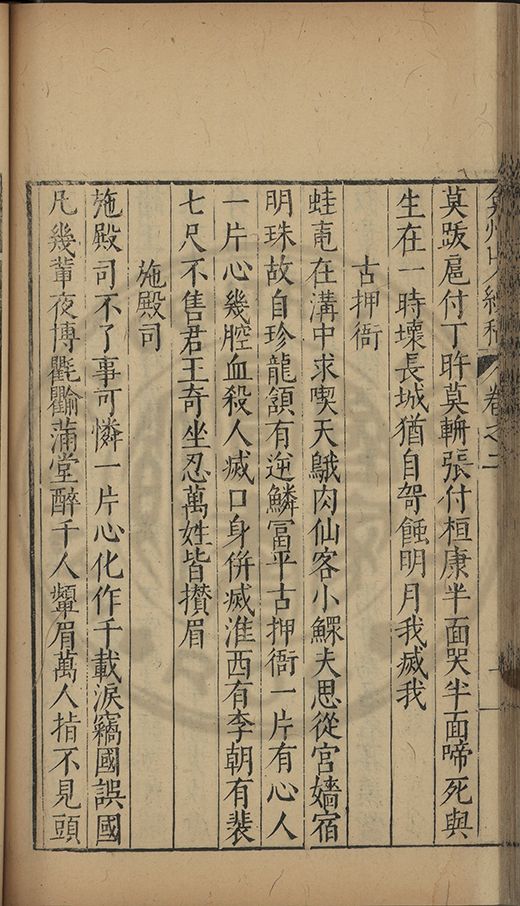 弇州山人續稿 卷之二
莫跋扈付丁旿莫輧張付桓康半面哭半面啼死與
生在一時壞長城猶自可蝕明月我滅我
古押衙
蛙黽在溝中求喫天鵝肉仙客小鰥夫思從宮嬙宿
明珠故自珍龍頷有逆鱗富平古押衙一片有心人
一片心幾腔血殺人滅口身併滅淮西有李朝有裴
七尺不售君王奇坐忍萬姓皆攅眉
施殿司
施殿司不了事可憐一片心化作千載淚竊國誤國
凡幾輩夜博氍毹滿堂醉千人顰眉萬人指不見頭